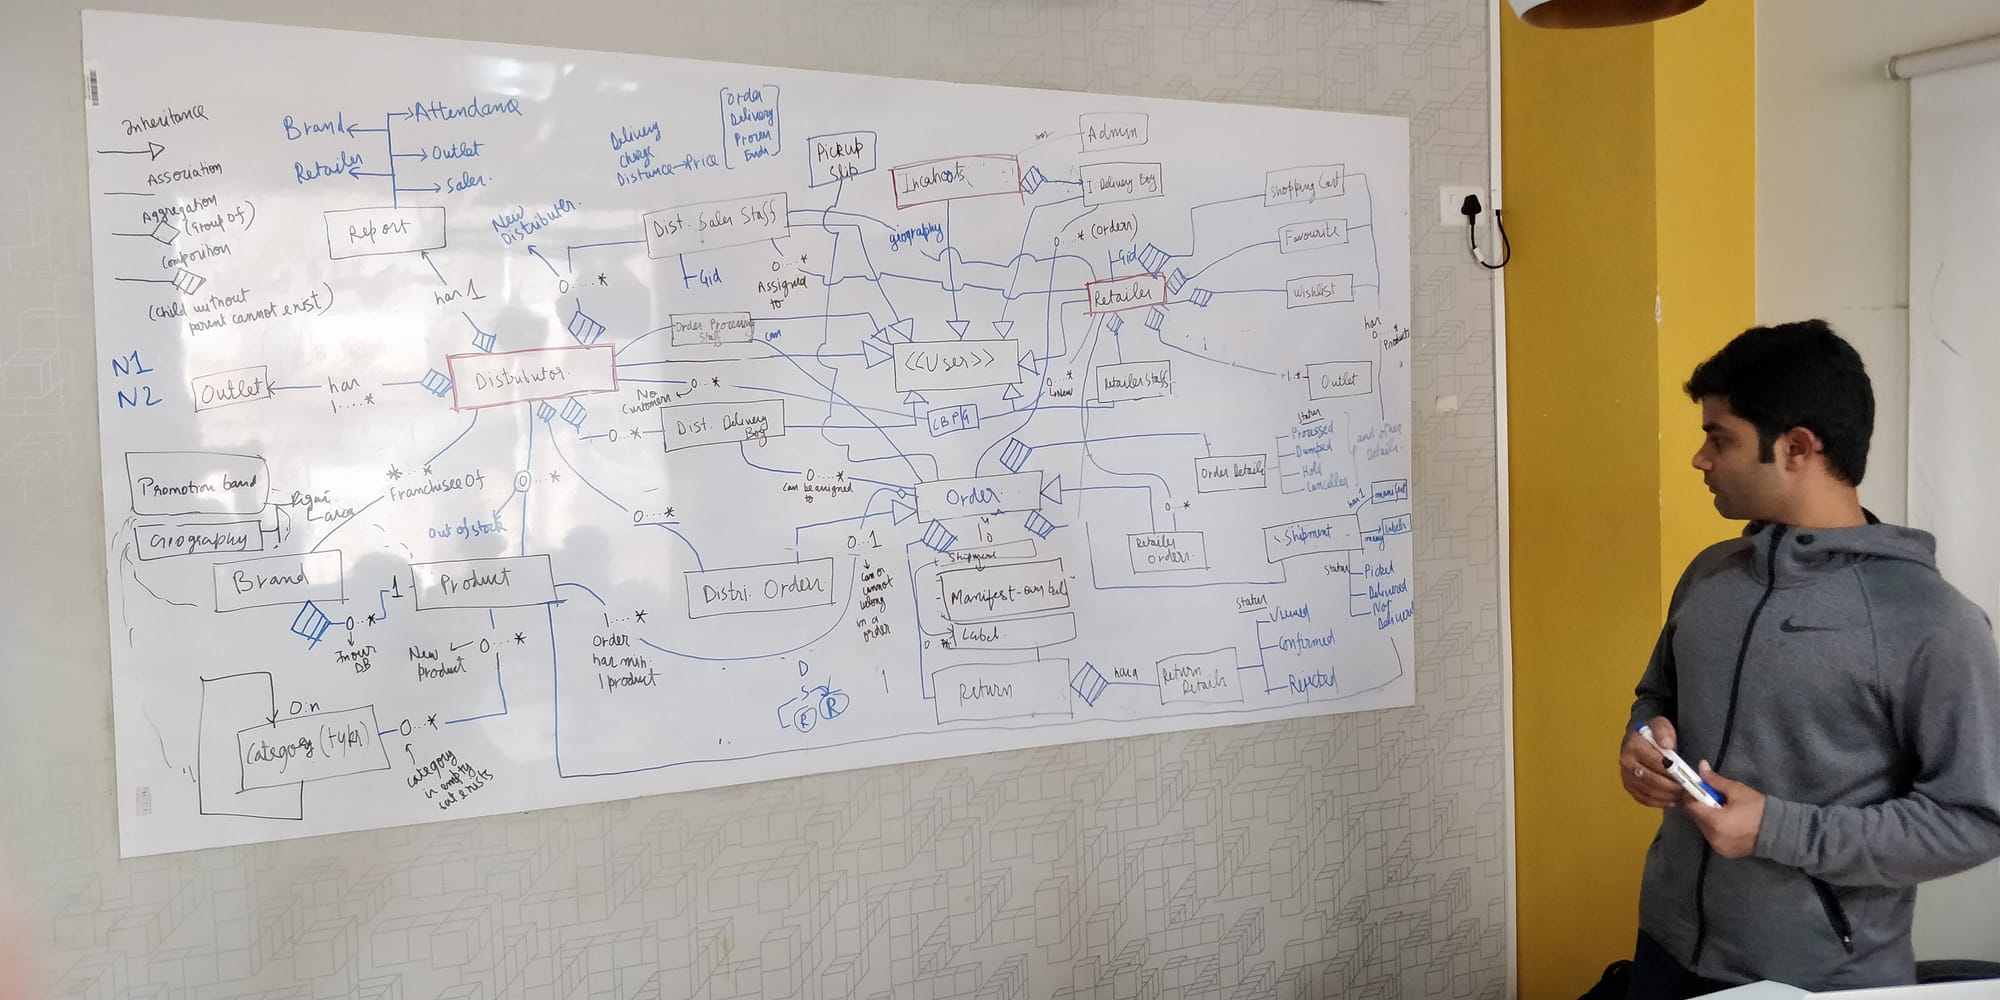 Inheritance
Association
Aggregation
(Group of)
Composition
(Child without
parent cannot exist)
N1
N2
Brand
Retailer
Attendance
Outlet
Sales.
Report
has 1
New
Distributer.
0....*
Delivery
Charge
Distance → Price
Order
Delivery
Process
Pickup
Slip
Dist. Sales Staff
Gid
0....*
Assigned
to
geography
Incahoots
has
Admin
I Delivery Boy
0....* (Orders)
Gid
Retailer
Shopping Cart
Favourite
Wishlist
has
0....*
Products
Order Processing
Staff
can
<<User>>
Outlet
has
1....*
Distributor.
0....*
No
Customers
Dist. Delivery
Boy
0...*
CBPG
0...*
New
Retailer Staff
1..*
Outlet
Status
Processed
Dumped
Hold
Cancelled
and other
details.
Order Details
Promotion band
Geography
area
*....*
Franchisee Of
0....*
Out of stock
0....*
can be assigned
to
Order
0...*
0...*
Retailer
Orders.
Shipment
has 1
manifest
many
Labels
Status
Picked
Delivered
Not
Delivered
Brand
0...*
In our
DB
1
Product
New
Product
0....*
1....*
Order
has min.
1 product
Distri. Order
0...1
can or
cannot
belong
in a
order
Shipment
Label
Return
has a
Return
Details
Status
Viewed
Confirmed
Rejected
0:n
Category (type)
0...*
category
is empty
D
S
R R